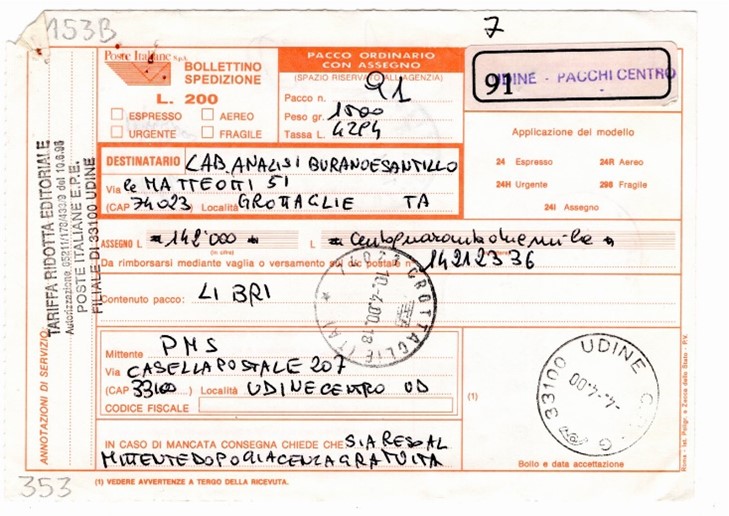 153B
7
Poste Italiane S.p.A.
BOLLETTINO
SPEDIZIONE
L. 200
ESPRESSO AEREO
URGENTE FRAGILE
PACCO ORDINARIO
CON ASSEGNO
(SPAZIO RISERVATO ALL'AGENZIA)
Pacco n. 91
Peso gr. 1500
Tassa L. 4294
91
UDINE - PACCHI CENTRO
-
Applicazione del modello
24 Espresso 24R Aereo
24H Urgente 298 Fragile
24I Assegno
DESTINATARIO LAB. ANALISI BURANOESANTILLO
Via le MATTEOTTI 51
(CAP 74023) Località GROTTAGLIE TA
ASSEGNO L *142'000* L *centoquarantaduemila
(in cifre)
Da rimborsarsi mediante vaglia o versamento sul c/c postale n° 14212336
Contenuto pacco: LIBRI
74023 GROTTAGLIE (TA) *
10.-4.00.18
Mittente PMS
Via CASELLA POSTALE 207
(CAP 33100) Località UDINE CENTRO UD
CODICE FISCALE
(1)
33100 UDINE
-4.-4.00
Bollo e data accettazione
IN CASO DI MANCATA CONSEGNA CHIEDE CHE SIA RESO AL
MITTENTE DOPO GIACENZA GRATUITA
(1) VEDERE AVVERTENZE A TERGO DELLA RICEVUTA.
353
ANNOTAZIONI DI SERVIZIO:
TARIFFA RIDOTTA EDITORIALE
POSTE ITALIANE E.P.E.
FILIALE DI 33100 UDINE